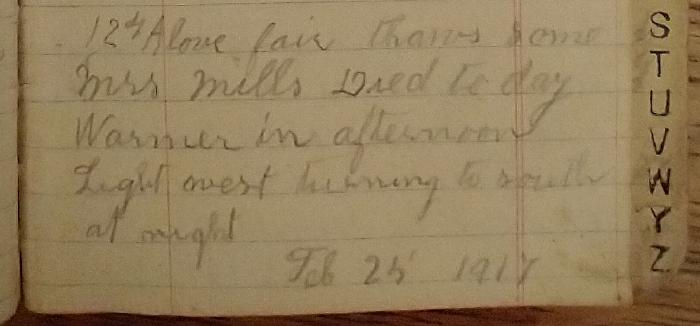 12 th Alove fair thaws some
Mrs Mills Died to day
Warmer in afternoon
Light west turning to south
at night
Feb 25 1917
S
T
U
V
W
Y
Z